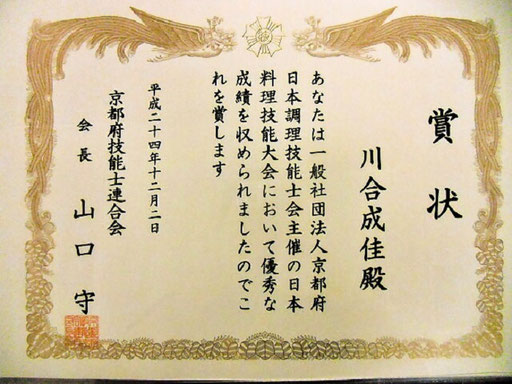 賞状
川合成佳殿
あなたは一般社団法人京都府
日本調理技能士会主催の日本
料理技能大会において優秀な
成績を収められましたのでこ
れを賞します
平成二十四年十二月二日
京都府技能士連合会
会長 山口守